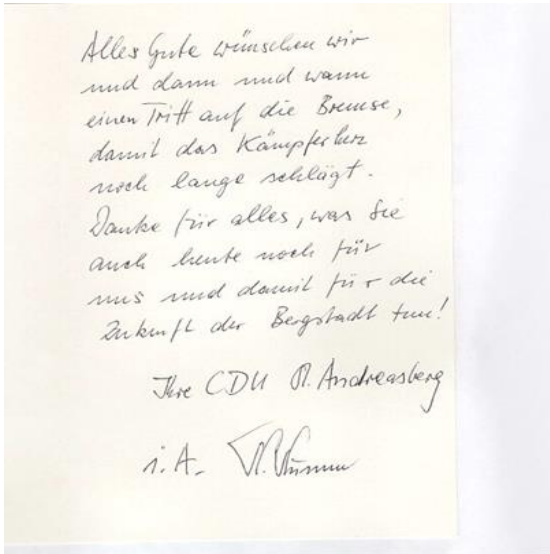 Alles Gute wünschen wir
und dann und wann
einen Tritt auf die Bremse,
damit das Kämpferherz
noch lange schlägt.
Danke für alles, was Sie
auch heute noch für
uns und damit für die
Zukunft der Bergstadt tun!
Ihre CDU St. Andreasberg
i. A.